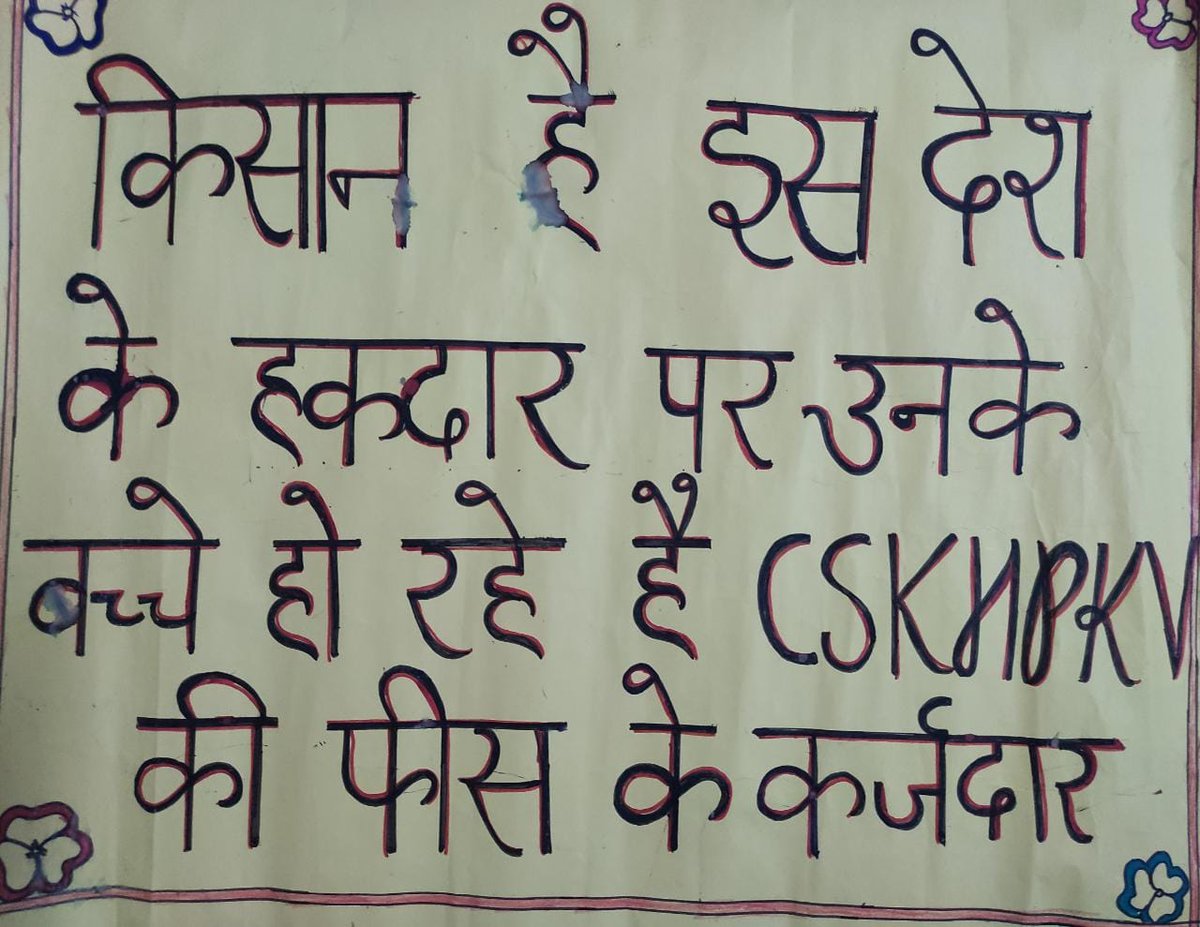 किसान है इस देश
के हकदार पर उनके
बच्चे हो रहे है CSKHPKV
की फीस के कर्जदार